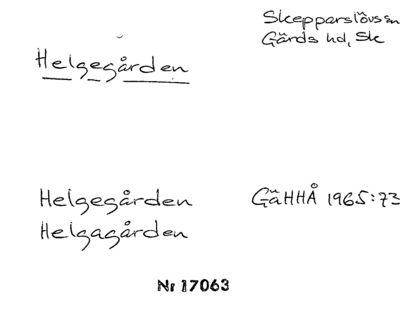 Skepparslövs sn
Gärds hd, Sk
Helgegården
Helgegården GäHHÅ 1965:73
Helgagården
Nr 17063